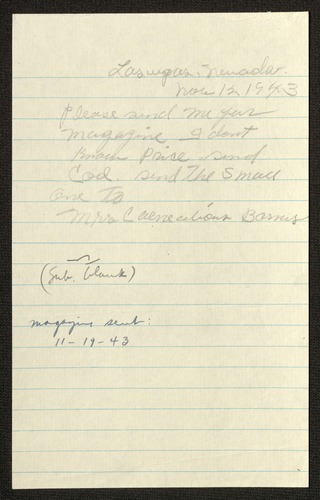 Las vegas, nevada.
Nov 12 1943
Please send me your
magazine I dont
know Price send
Cod. send the Small
one To
Mrs Barnes
(Sub. blank)
magazine sent:
11-19-43